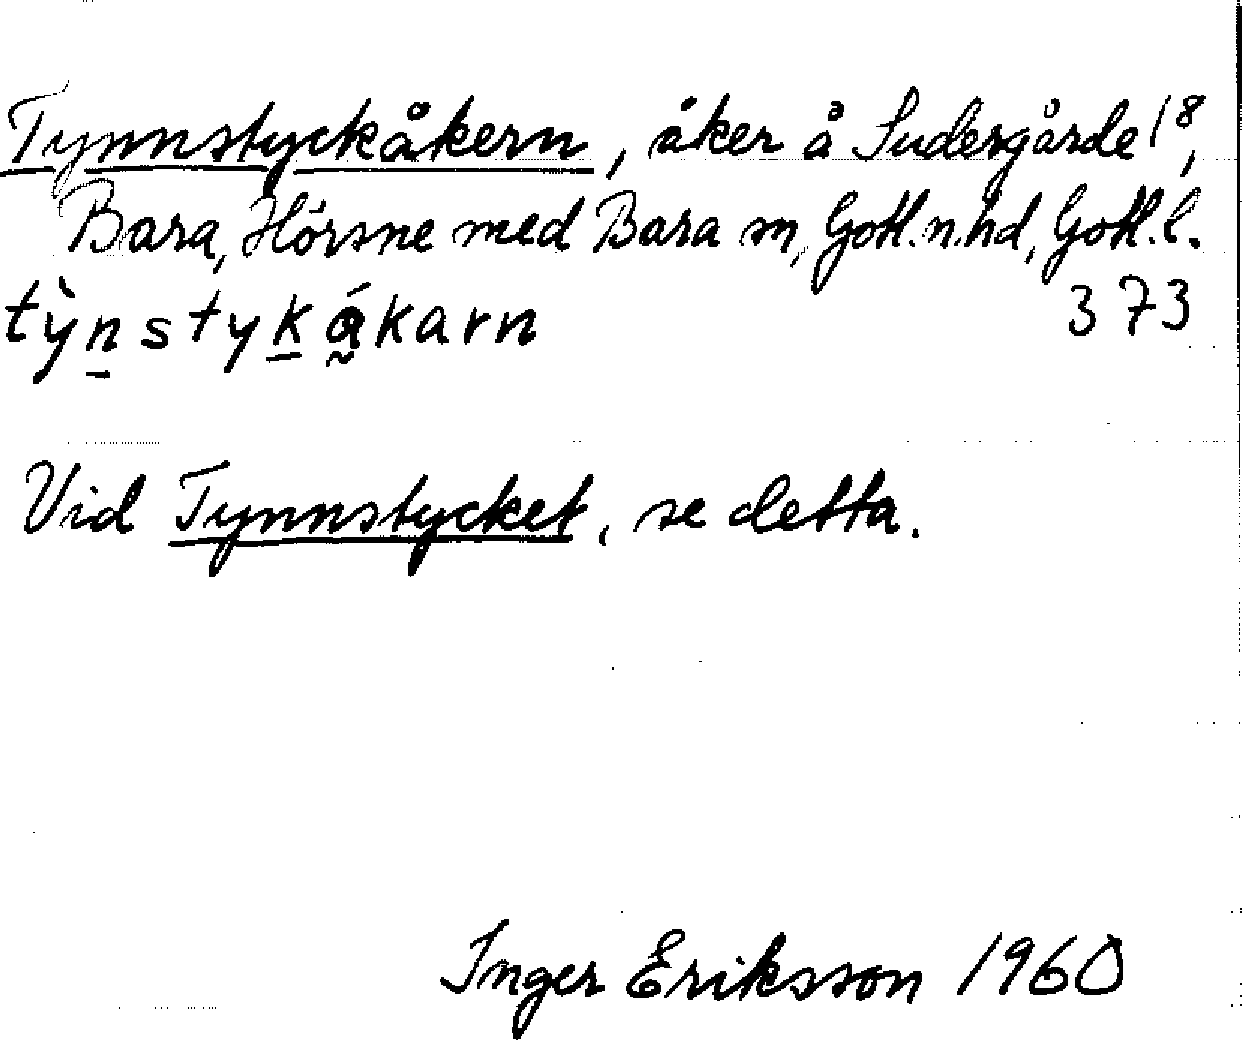 Tynnstyckåkern, åker å Sudergårde 1⁸,
Bara, Hörsne med Bara sn, Gotl. n. hd, Gotl. l.
tỳn̲styk̲ á̰karn 373
Vid Tynnstycket, se detta.
Inger Eriksson 1960